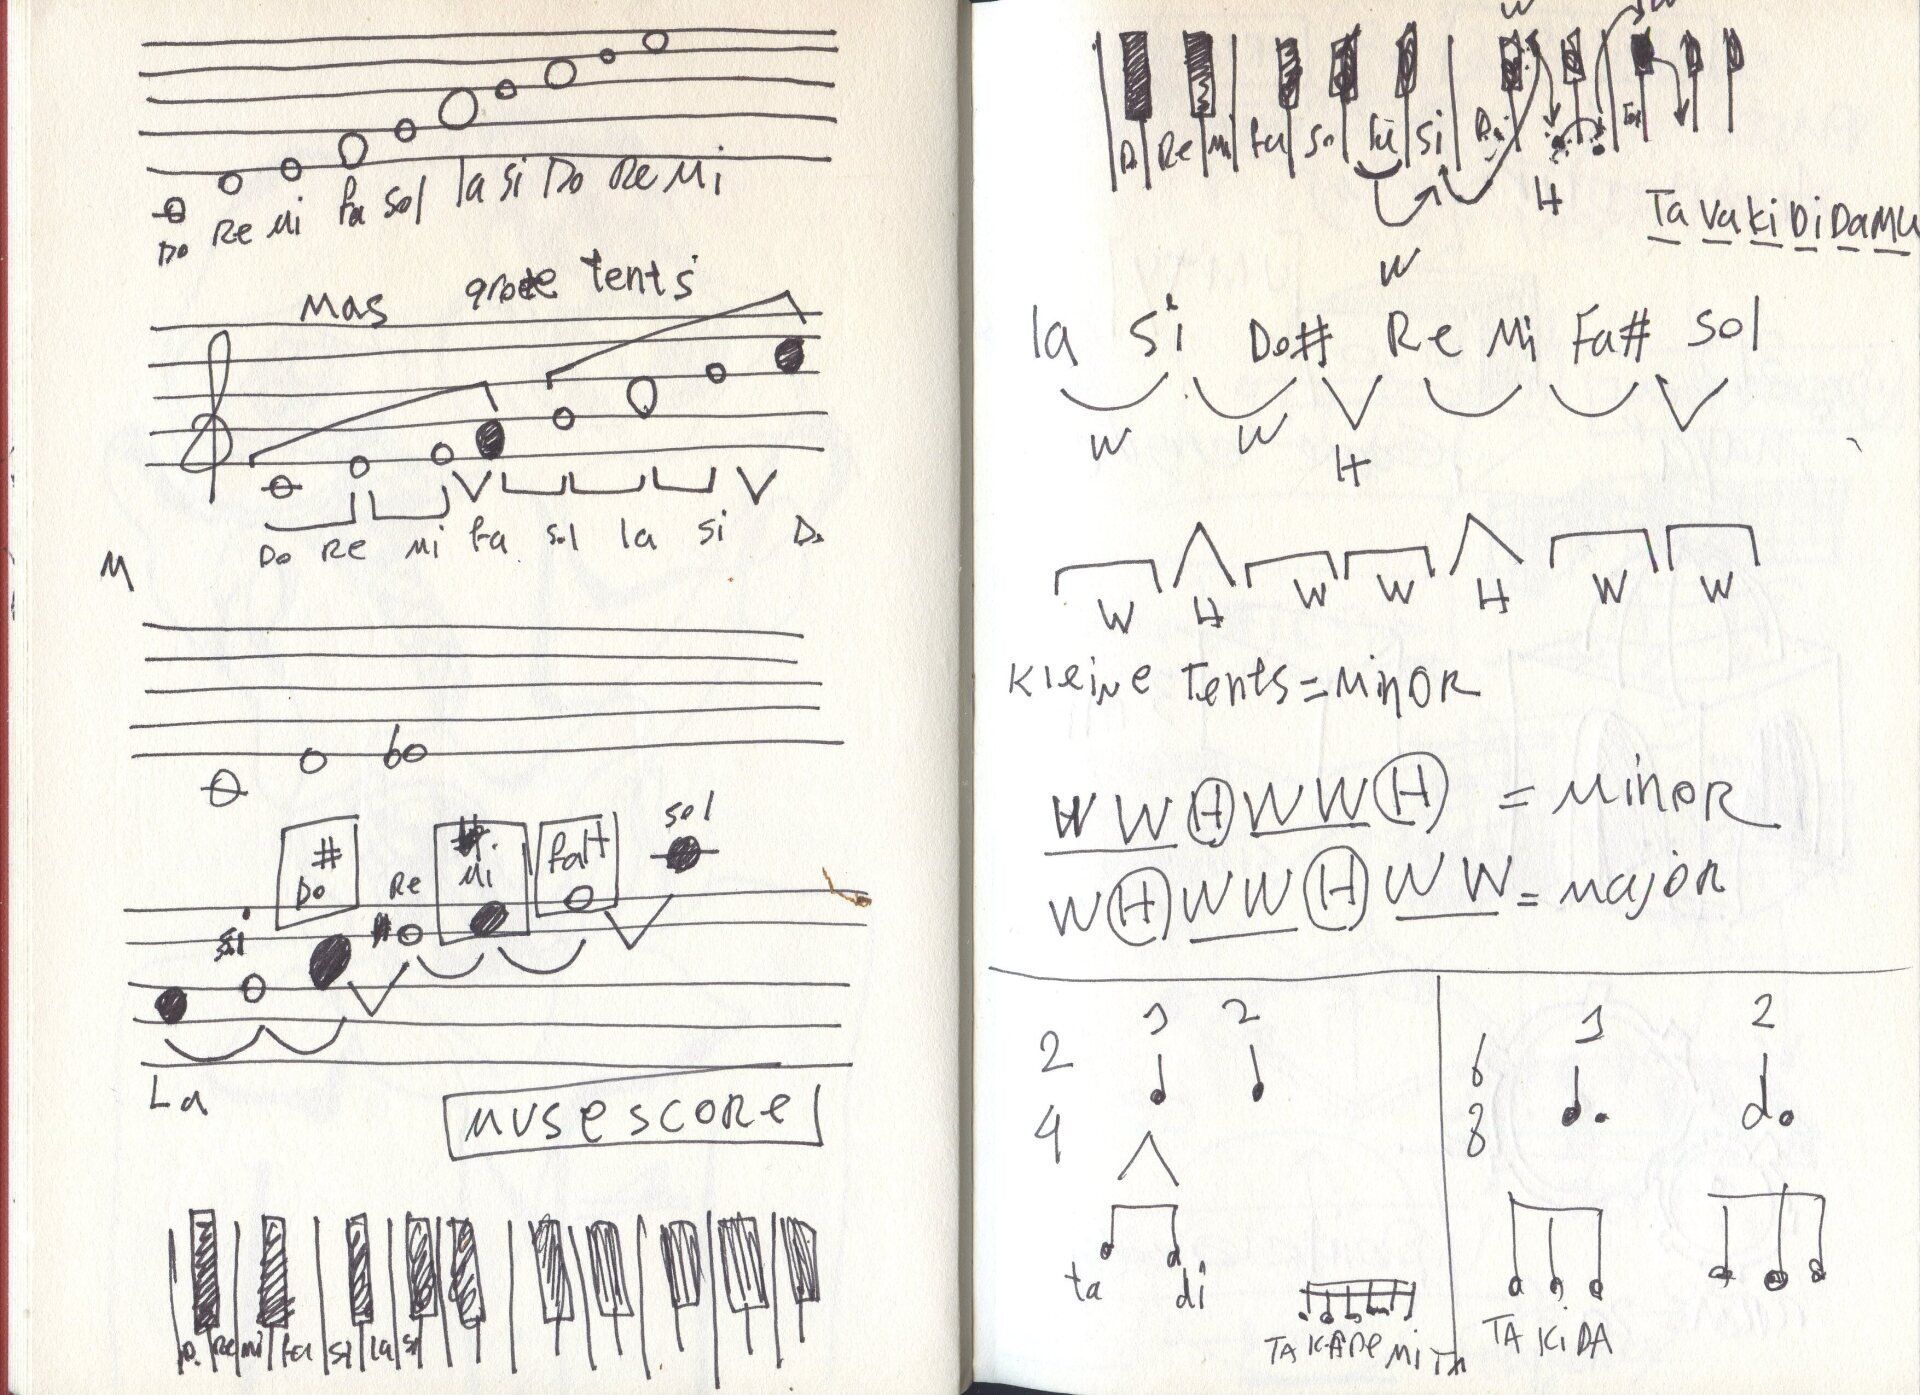 Do Re Mi fa sol la si Do Re Mi
Mas grote tents
Do Re Mi fa sol la si Do
M
sol
# Do
Re
Mi
fa#
si
La
MUSESCORE
Do Re Mi fa sol la si
W
Do Re Mi fa so la si Do
H
Ta Va Ki Di Da Mu
W
la si Do# Re Mi Fa# sol
W W H
W H W W H W W
Kleine Tents = MINOR
W W H W W H = MINOR
W H W W H W W = major
1 2
2
4
ta di
TA KA DE MI TA
1 2
6
8
TA KI DA